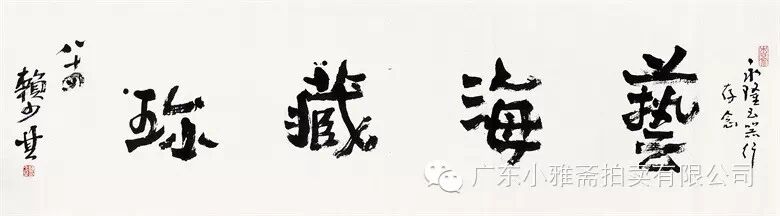 永隆玉器行
存念
藝海藏珎
八十
賴少其
广东小雅斋拍卖有限公司